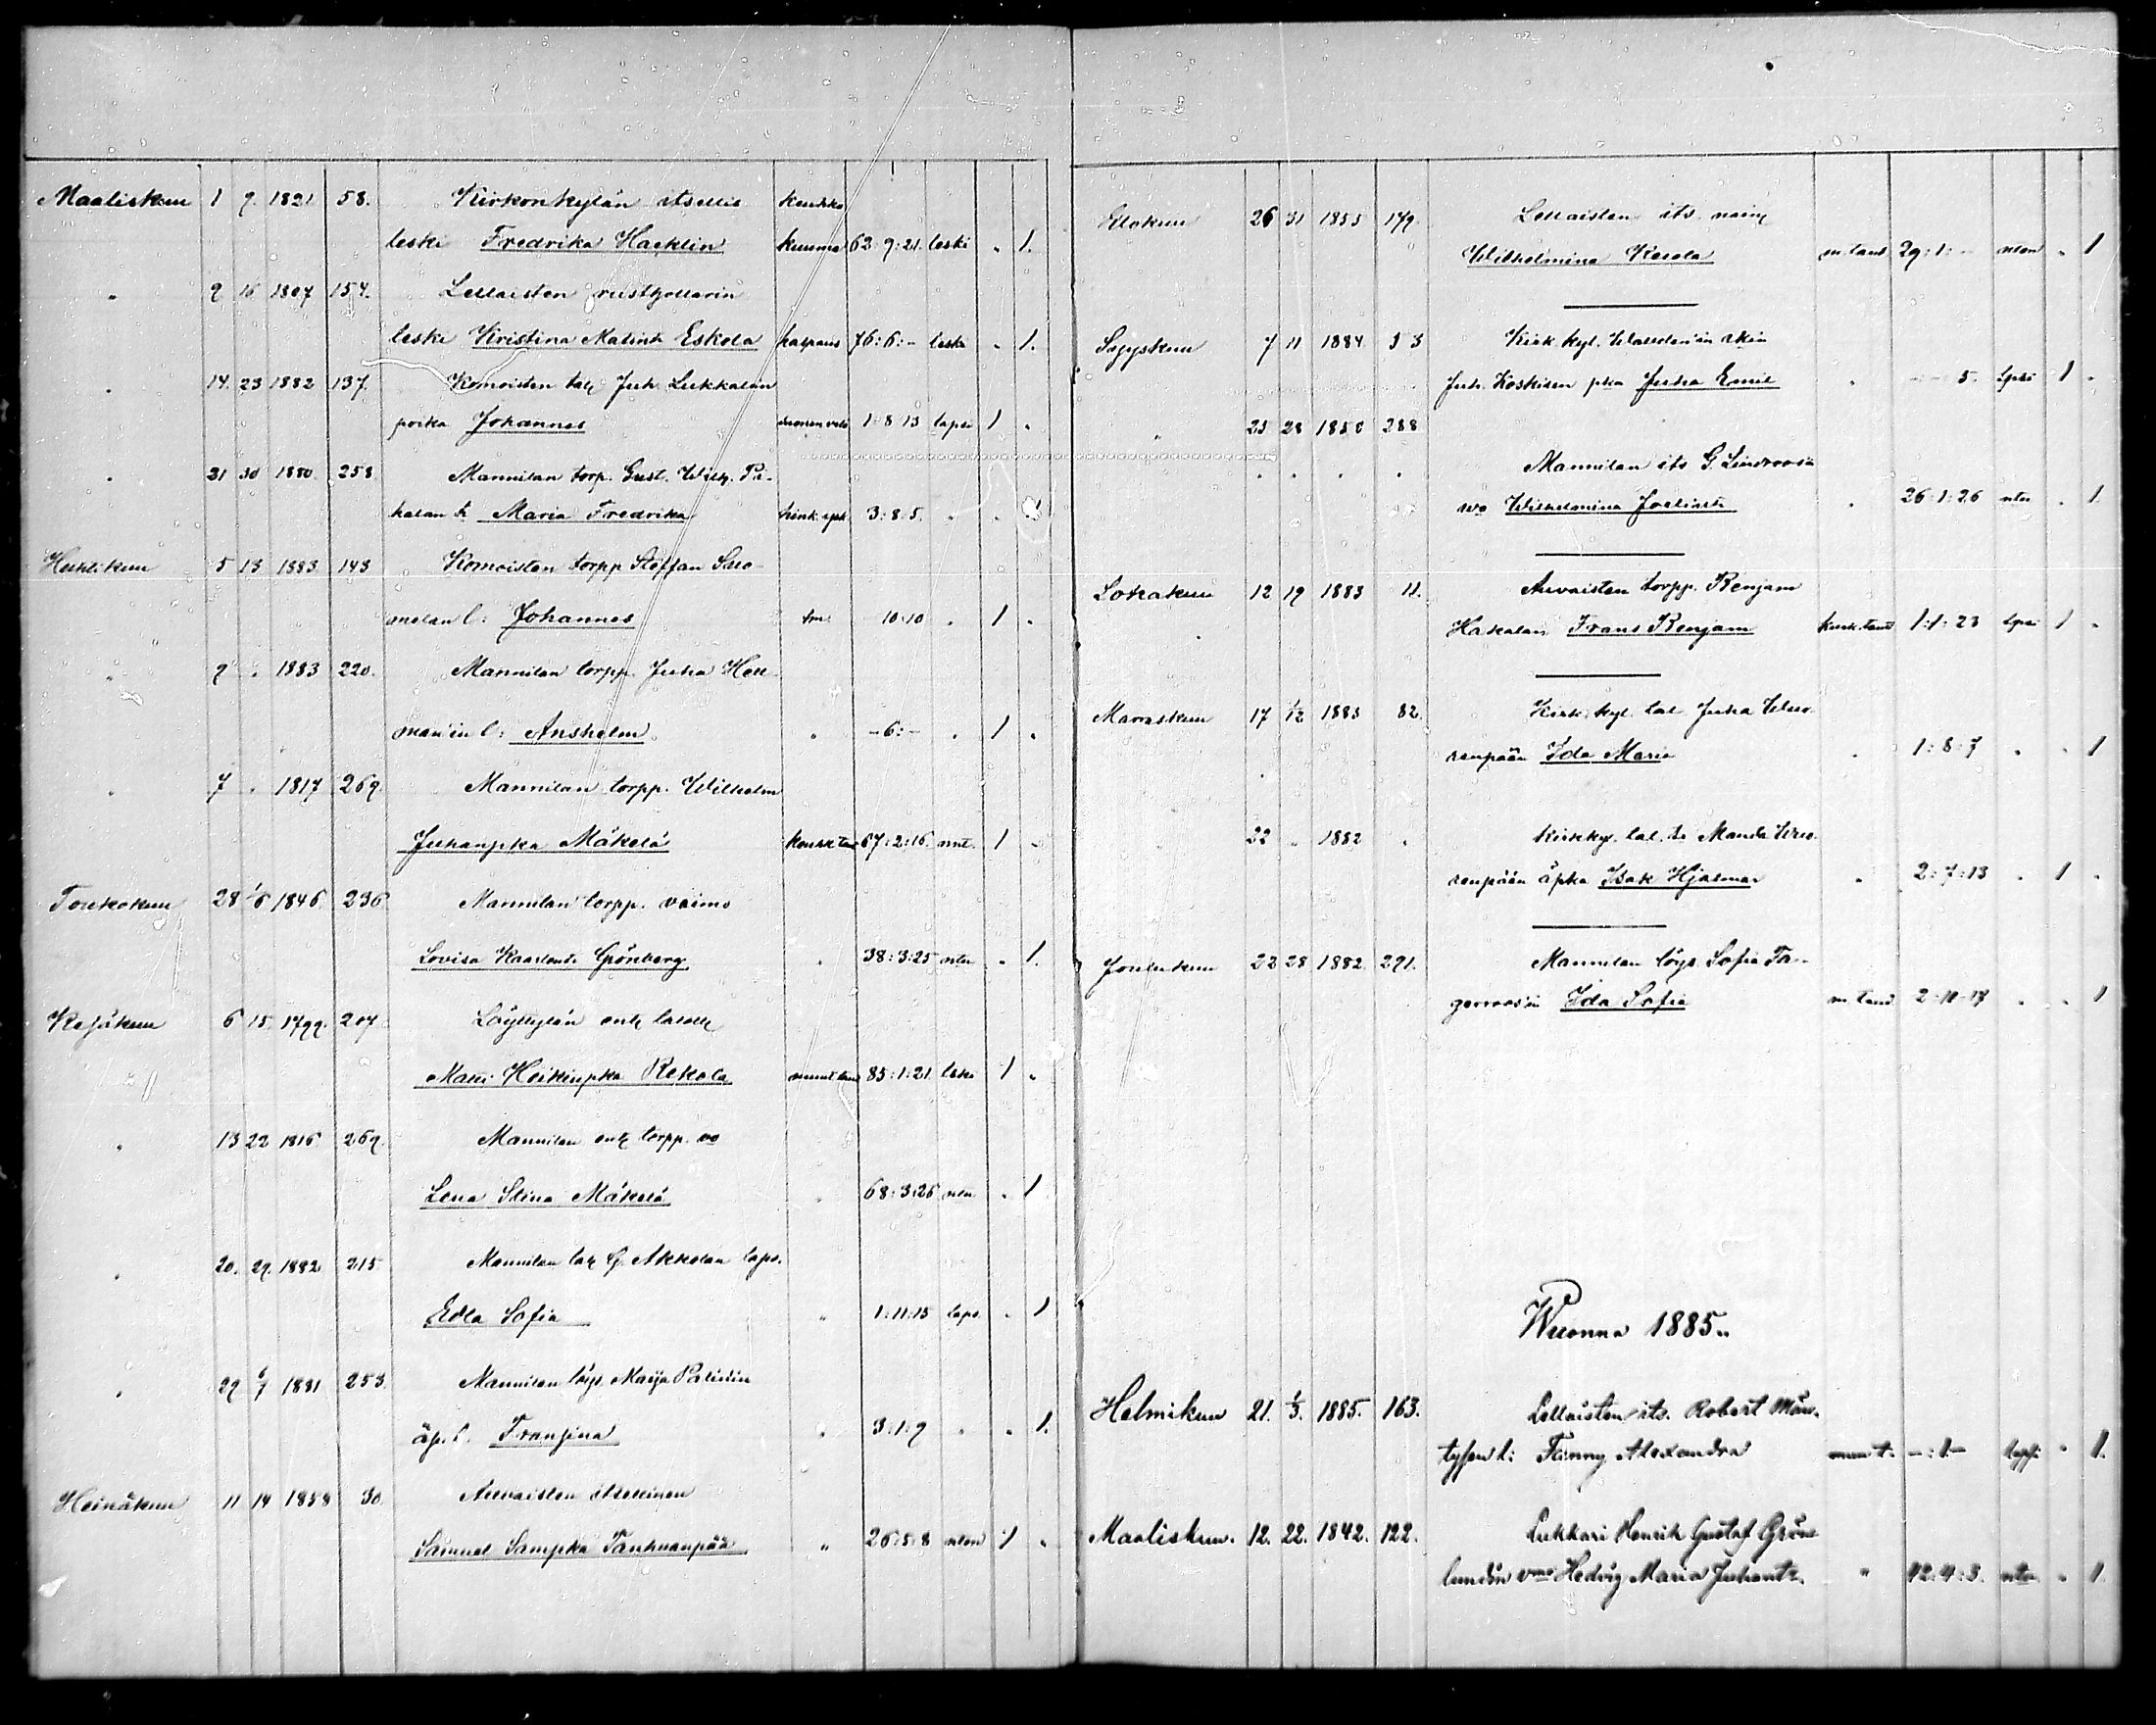 Maaliskuu 1 9. 1821 58. Kirkonkylän itsellis
leski Fredrika Hacklin kuuma 62:9:21. leski " 1.
" 9 16 1807 154. Lellaisten rusthollarin
leski Kristina Matint. Eskola halvaus 76:6:- leski " 1.
" 14. 23 1882 137. Komoisten tal. Juh. Lukkalan
poika Johannes 1:8:13 lapsi 1 "
" 21 30 1880. 258. Mannilan torp. Gust. Wilh. Pa-
kalan t. Maria Fredrika 3:8:5. " "
Huhtikuu 5 13 1883. 143 Komoisten torpp Staffan Suo-
melan l: Johannes 10:10 " 1 "
" 9 " 1883 220. Mannilan torpp. Juha Hell-
man'in l: Anshelm " -6:- " 1 "
" 7 " 1817 269. Mannilan torpp. Wilhelm
Juhanpka Mäkelä 67:2:16. 1 "
Toukokuu 28 1/6 1846. 236 Mannilan torpp. vaimo
Lovisa Kaarlont. Grönberg " 38:3:25 " 1.
Kesäkuu 6 15. 1799. 207 Löyttylän ent.
Matti Heikinpka Rekola 85:1:21 leski 1 "
" 13 22 1816 269. Mannilan ent. torpp. vo
Lena Stina Mäkelä " 68:3:26 " 1
" 20. 29. 1882 215 Mannilan tal. G. Akkolan laps.
Edla Sofia " 1:11:15 laps. " 1
" 29 6/7 1881 253. Mannilan löys. Maija Palinin
äp. l. Fransina " 3:1:9 " " 1.
Heinäkuu 11 14 1858 30. Auvaisten itsellinen
Samuel Sampka Tanhuanpää " 26:5:8 1 "
Elokuu 26 31 1855 179. Lellaisten its. nainen
Wilhelmina Kesola m. taud 29:1:- " 1
Syyskuu 7 11 1884. 53 Kirk. kyl.
Juh. Koskisen pka Juha Emil " 5. lapsi 1 "
" 25 28 1850 288
" " " " Mannilan its G. Lindroosin
vo Wilhelmina " 26:1:26 " 1.
Lokakuu 12 19 1883 11. Auvaisten torpp. Benjam
Hakalan Frans Benjam 1:1:23 lapsi 1 "
Marraskuu 17 1/12 1883 82. Kirk. kyl. tal. Juha Wuo-
renpään Ida Maria " 1:8:7 " " 1
" 22 " 1882 " Kirkkyl. tal. t. Manda Wuo-
renpään äpka Isak Hjalmar " 2:7:13 " 1 "
Joulukuu 22 28 1882. 291. Mannilan löys. Sofia Fa-
gerroosin Ida Sofia m. taud 2:10:17 " " 1
Wuonna 1885..
Helmikuu 21. 1/3. 1885. 163. Lellaisten its. Robert Män-
tysen l: Fanny Alexandra -:1- lapsi " 1.
Maaliskuu. 12. 22. 1842. 122. Lukkari Henrik Gustaf Grön-
lundin vmo Hedvig Maria Juhant. " 42:4:3. " 1.